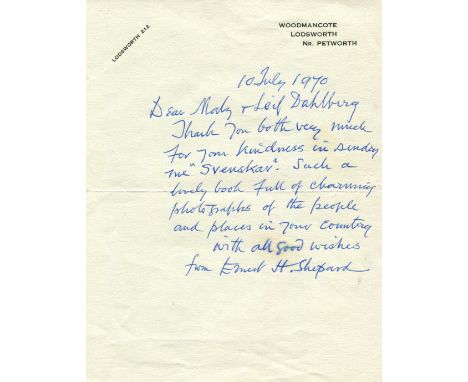 LODSWORTH 212
WOODMANCOTE
LODSWORTH
NR. PETWORTH
10 July 1970
Dear & Leif Dahlberg
Thank you both very much
for your kindness in sending
me "Svenskar". Such a
lovely book full of charming
photographs of the people
and places in your country
with all good wishes
from Ernest H. Shepard